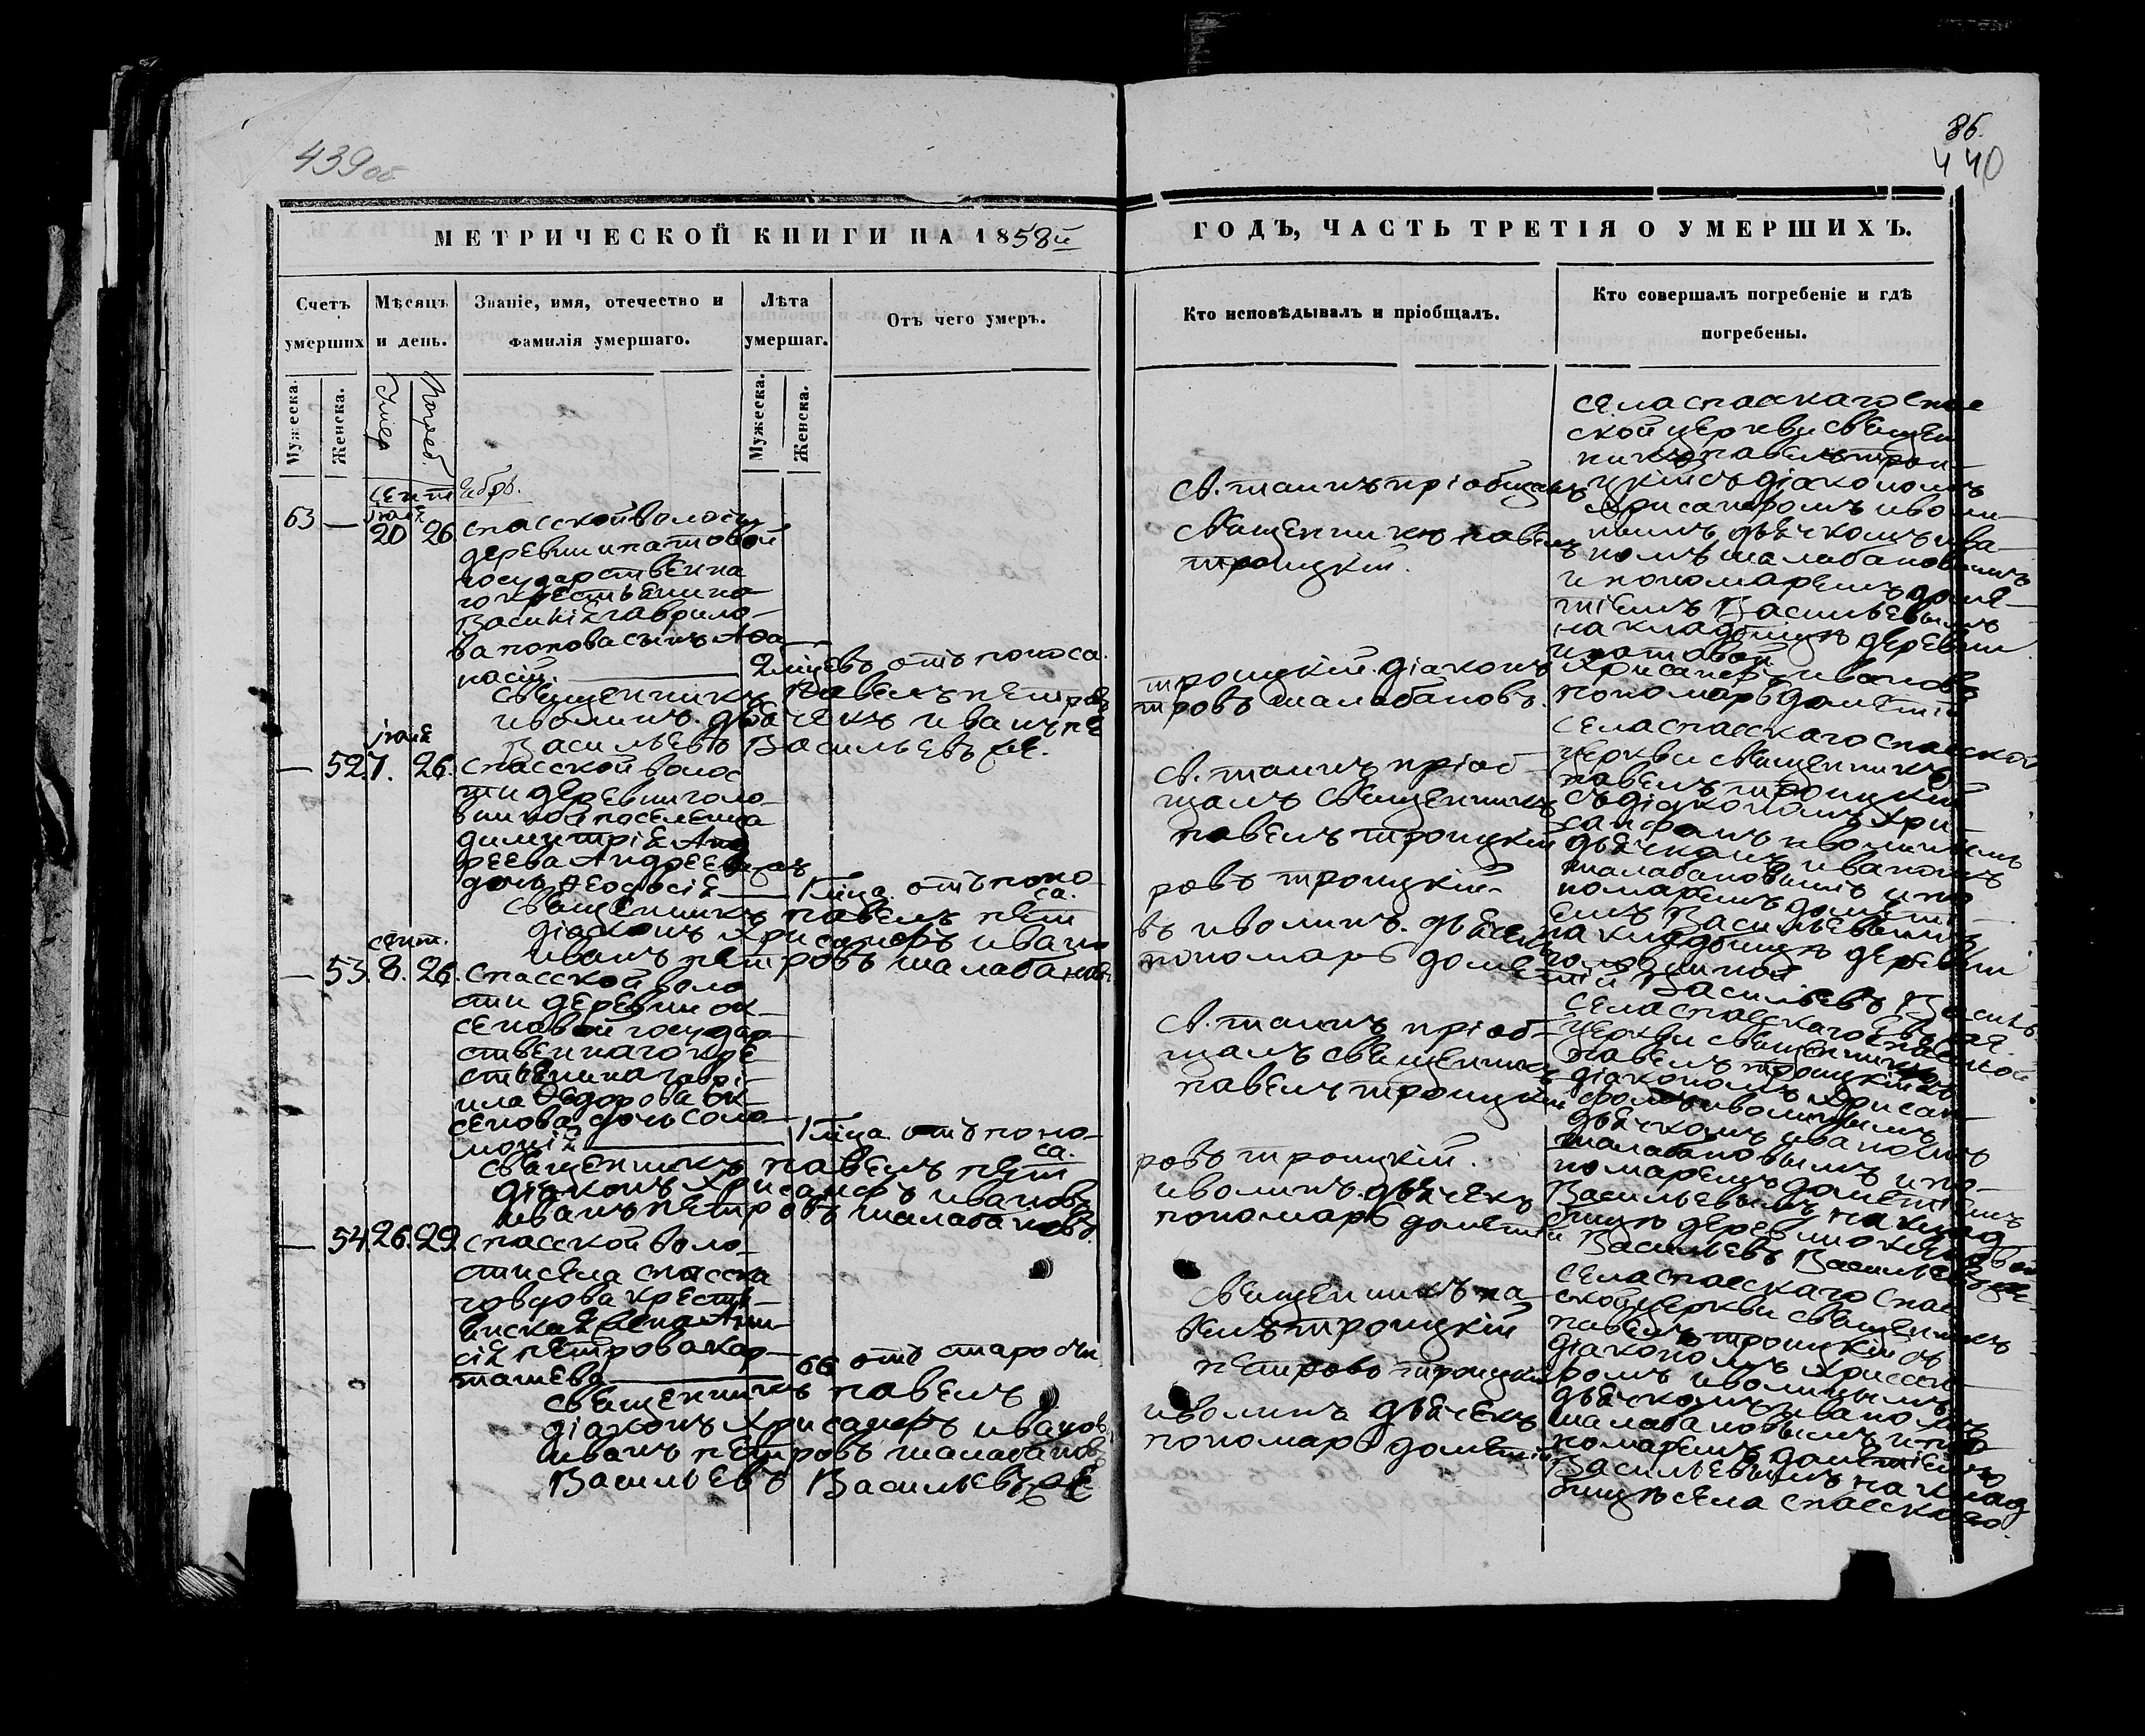 439об
86.
440
МЕТРИЧЕСКОЙ КНИГИ НА 1858й
ГОДЪ, ЧАСТЬ ТРЕТІЯ О УМЕРШИХЪ.
Счетъ умершихъ
Мѣсяцъ и день.
Званіе, имя, отечество и фамилія умершаго.
Лѣта умершаг.
Отъ чего умеръ.
Кто исповѣдывалъ и пріобщалъ.
Кто совершалъ погребеніе и гдѣ погребены.
Мужеска.
Женска.
Умер
Погреб.
Мужеска.
Женска.
сентябрь.
іюля
63 — 20 26
спасской волости
деревни ипатовой
государственна
го крестьянина
Василія гаврило
ва попова сынъ Афа
насій.
2 мцевъ отъ поноса.
св. таинъ пріобщалъ
Священникъ павелъ
троицкій.
села спасскаго Спас
ской церкви священ
никъ павелъ трои
цкій съ діакономъ
Хрисанфомъ иволи
нымъ дьячкомъ ива
номъ шалабановымъ
и пономаремъ доме
тіемъ Васильевымъ
на кладбищѣ деревни
ипатовой
Священникъ Павелъ петровъ троицкій. діаконъ Хрисанфъ ивановъ
иволинъ. дьячекъ иванъ петровъ шалабановъ. пономарь дометій
Васильевъ Васильевъ же.
іюля
— 52 7. 26.
спасской волос
ти деревни голо
виной поселенца
димитрія Анд
реева Андреевыхъ
дочь Феодосія
1 мца. отъ поно
са.
св. таинъ пріоб
щалъ священникъ
павелъ троицкій
села спасскаго спасской
церкви священникъ
павелъ троицкій
съ діакономъ Хри
санфомъ иволинымъ
дьячкомъ иваномъ
шалабановымъ и по
номаремъ домети
емъ Васильевымъ
на кладбищѣ деревни
головиной
Священникъ павелъ петровъ троицкій
діаконъ Хрисанфъ ивановъ иволинъ. дьячекъ
иванъ петровъ шалабановъ пономарь дометій Васильевъ Василь
евъ же.
сент.
— 53. 8. 26.
спасской воло
сти деревни ок
сеновой государ
ственнаго кре
стьянина гаврі
ила Федорова Ок
сенова дочь соло
монія
1 мца. отъ поно
са.
св. таинъ пріоб
щалъ священникъ
павелъ троицкій
села спасскаго спасской
церкви священникъ
павелъ троицкій съ
діакономъ Хрисан
фомъ иволинымъ
дьячкомъ иваномъ
шалабановымъ и по
номаремъ дометіемъ
Васильевымъ на клад
бищѣ деревни оксеновой
Священникъ павелъ петровъ троицкій.
діаконъ Хрисанфъ ивановъ иволинъ. дьячекъ
иванъ петровъ шалабановъ. пономарь дометій Васильевъ Васильевъ же.
— 54. 26. 29.
спасской воло
сти села спасска
го вдова крестья
нская жена Ани
сія петрова кар
ташева
66 отъ старости
Священникъ па
велъ троицкій
села спасскаго спас
ской церкви священникъ
павелъ троицкій съ
діакономъ Хрисанфо
ромъ иволинымъ
дьячкомъ иваномъ
шалабановымъ и по
номаремъ дометіемъ
Васильевымъ на клад
бищѣ села спасскаго.
Священникъ павелъ петровъ троицкій
діаконъ Хрисанфъ ивановъ иволинъ дьячекъ
иванъ петровъ шалабановъ пономарь дометій
Васильевъ Васильевъ же